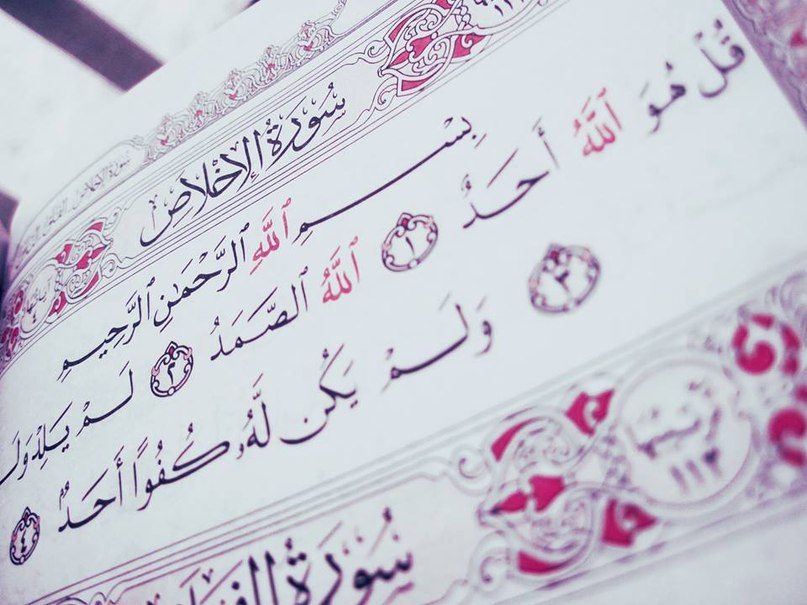 سُورَةُ الإِخْلَاصِ
بِسْمِ ٱللَّهِ ٱلرَّحْمَٰنِ ٱلرَّحِيمِ
قُلْ هُوَ ٱللَّهُ أَحَدٌ ١ ٱللَّهُ ٱلصَّمَدُ ٢ لَمْ يَلِدْ وَلَ
٣ وَلَمْ يَكُن لَّهُۥ كُفُوًا أَحَدٌۢ ٤
سُورَةُ ٱلْفَلَ
١١٣